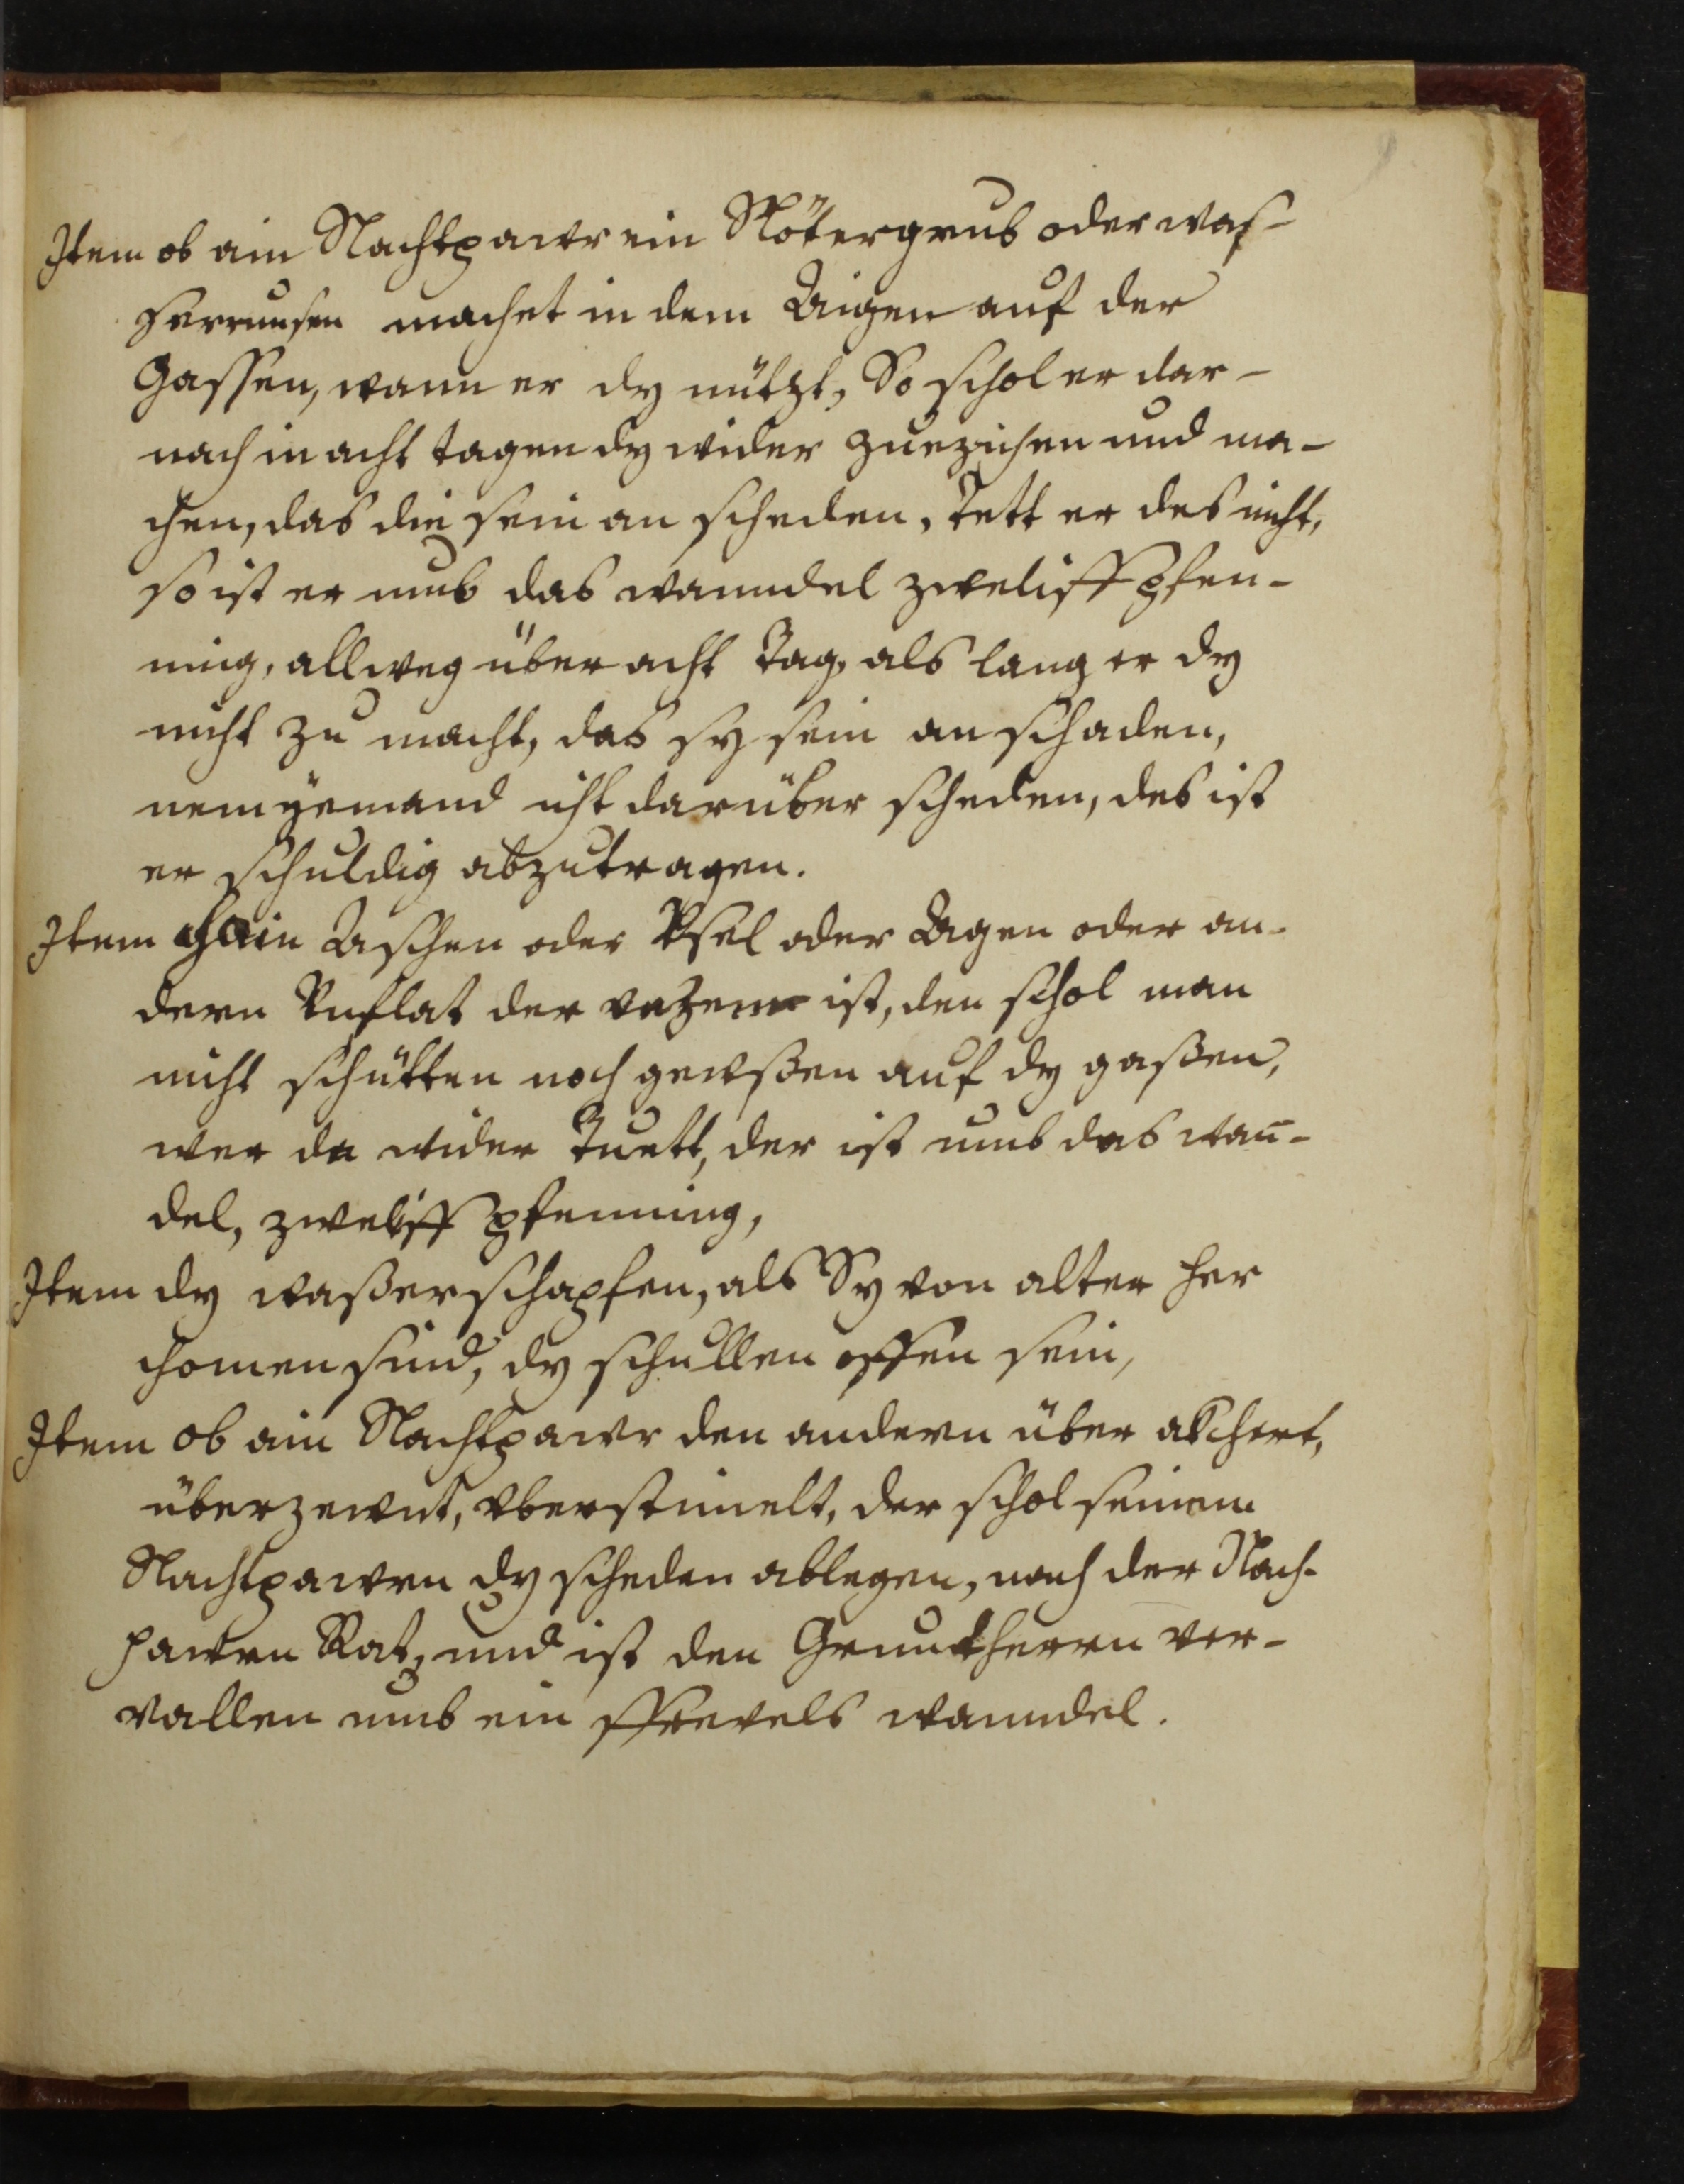 Item ob ain Nachtpawr ein Rötergrub oder was-
serrunsen machet in dem Aigen auf der
Gassen, wann er dy nützt, So schol er dar-
nach in acht tagen dy wider zueziehen und ma-
chen, das die sein an scheden, Tett er des nicht,
so ist er umb das wanndel zweliff pfen-
ning, allweg über acht Tag, als lang er dy
nicht zu macht, das sy sein an schaden,
nem yemand icht darüber scheden, des ist
er schuldig abzutragen.
Item chain Aschen oder Usel oder Agen oder an-
dern Unflat der ist, den schol man
nicht schütten noch giessen auf dy gaßen,
wer da wider Tuett, der ist umb das wan-
del, zweliff pfenning,
Item dy waßerschapfen, als Sy von alter her
chomen sind, dy schullen offen sein,
Item ob ain Nachtpawr den andern über akchert,
überzewnt, vberstimelt, der schol seinem
Nachtpawrn dy scheden ablegen, nach der Nach-
pawrn Rat, und ist den Gruntherrn ver-
vallen umb ein ffrevels wanndel.